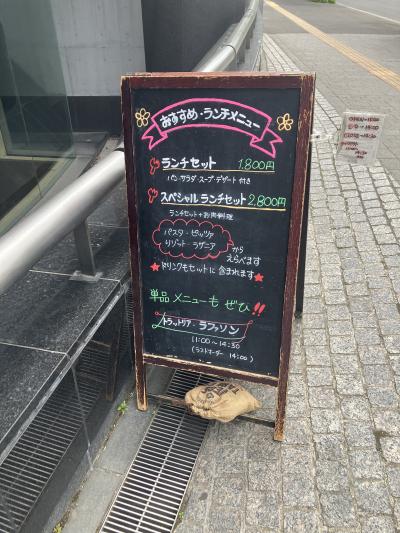 おすすめ・ランチメニュー
ランチセット 1,800円
パン・サラダ・スープ・デザート付き
スペシャルランチセット 2,800円
ランチセット+お肉料理
パスタ・ピッツァ
リゾット・ラザニア
から
えらべます
★ドリンクもセットに含まれます★
単品メニューもぜひ!!
トラットリア・ラファソン
11:00〜14:30
(ラストオーダー 14:00)